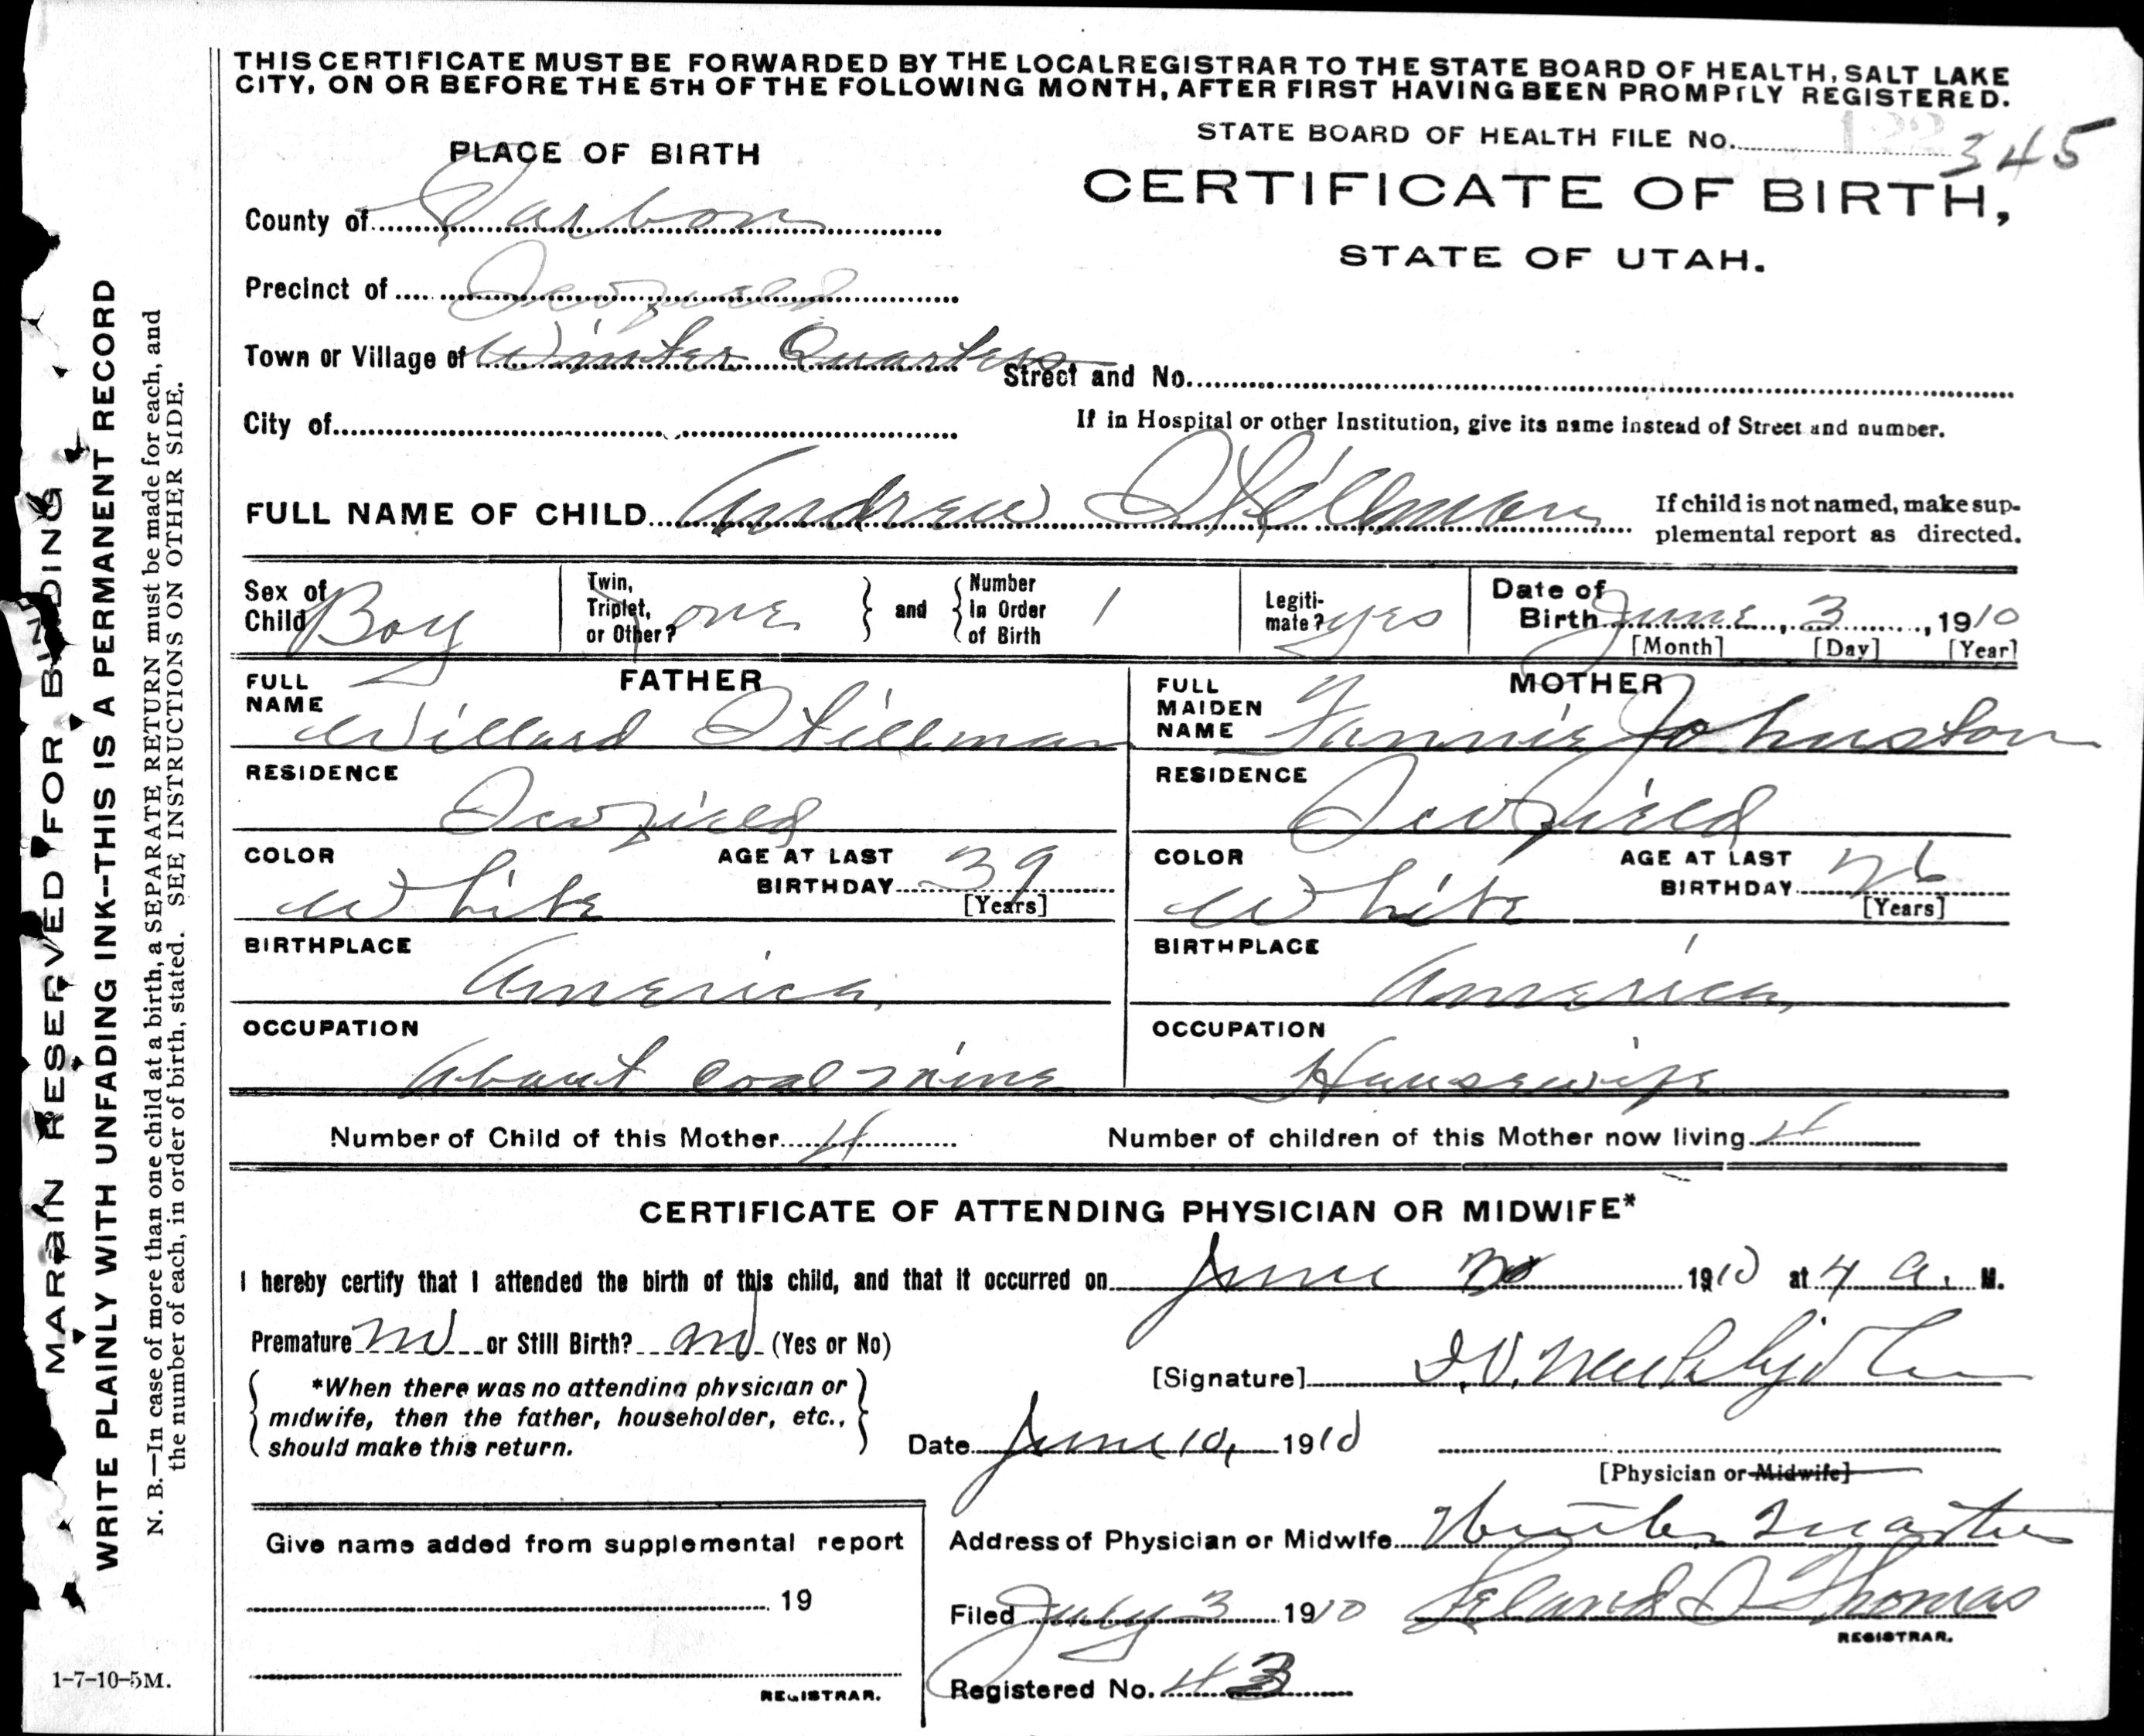 THIS CERTIFICATE MUST BE FORWARDED BY THE LOCAL REGISTRAR TO THE STATE BOARD OF HEALTH, SALT LAKE
CITY, ON OR BEFORE THE 5TH OF THE FOLLOWING MONTH, AFTER FIRST HAVING BEEN PROMPTLY REGISTERED.
STATE BOARD OF HEALTH FILE No. 122 345
PLACE OF BIRTH
CERTIFICATE OF BIRTH,
STATE OF UTAH.
County of Carbon
Precinct of Scofield
Town or Village of Winter Quarters
Street and No.
City of
If in Hospital or other Institution, give its name instead of Street and number.
FULL NAME OF CHILD Andrew Stillman
If child is not named, make sup-
plemental report as directed.
Sex of Child Boy
Twin, Triplet, or Other? one
and
Number in Order of Birth 1
Legiti-mate? yes
Date of Birth June, 3, 1910
[Month] [Day] [Year]
FATHER
FULL NAME Willard Stillman
RESIDENCE
Scofield
COLOR White
AGE AT LAST BIRTHDAY 39
[Years]
BIRTHPLACE
America,
OCCUPATION
About coal mine
MOTHER
FULL MAIDEN NAME Fannie Johnston
RESIDENCE
Scofield
COLOR White
AGE AT LAST BIRTHDAY 26
[Years]
BIRTHPLACE
America,
OCCUPATION
Housewife
Number of Child of this Mother 4
Number of children of this Mother now living 4
CERTIFICATE OF ATTENDING PHYSICIAN OR MIDWIFE*
I hereby certify that I attended the birth of this child, and that it occurred on June 1910 at 4 a. M.
Premature no or Still Birth? no (Yes or No)
*When there was no attending physician or
midwife, then the father, householder, etc.,
should make this return.
[Signature]
Date June 10, 1910
[Physician or Midwife]
Address of Physician or Midwife Winter Quarters
Filed July 3 1910 Leland S Thomas
REGISTRAR.
Registered No. 43
Give name added from supplemental report
19
REGISTRAR.
MARGIN RESERVED FOR BINDING
WRITE PLAINLY WITH UNFADING INK--THIS IS A PERMANENT RECORD
N. B.—In case of more than one child at a birth, a SEPARATE RETURN must be made for each, and
the number of each, in order of birth, stated. SEE INSTRUCTIONS ON OTHER SIDE.
1-7-10-5M.